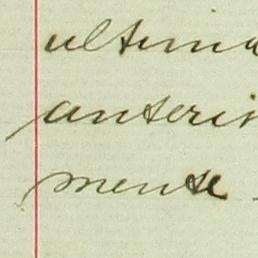 ultima
anterior
mente